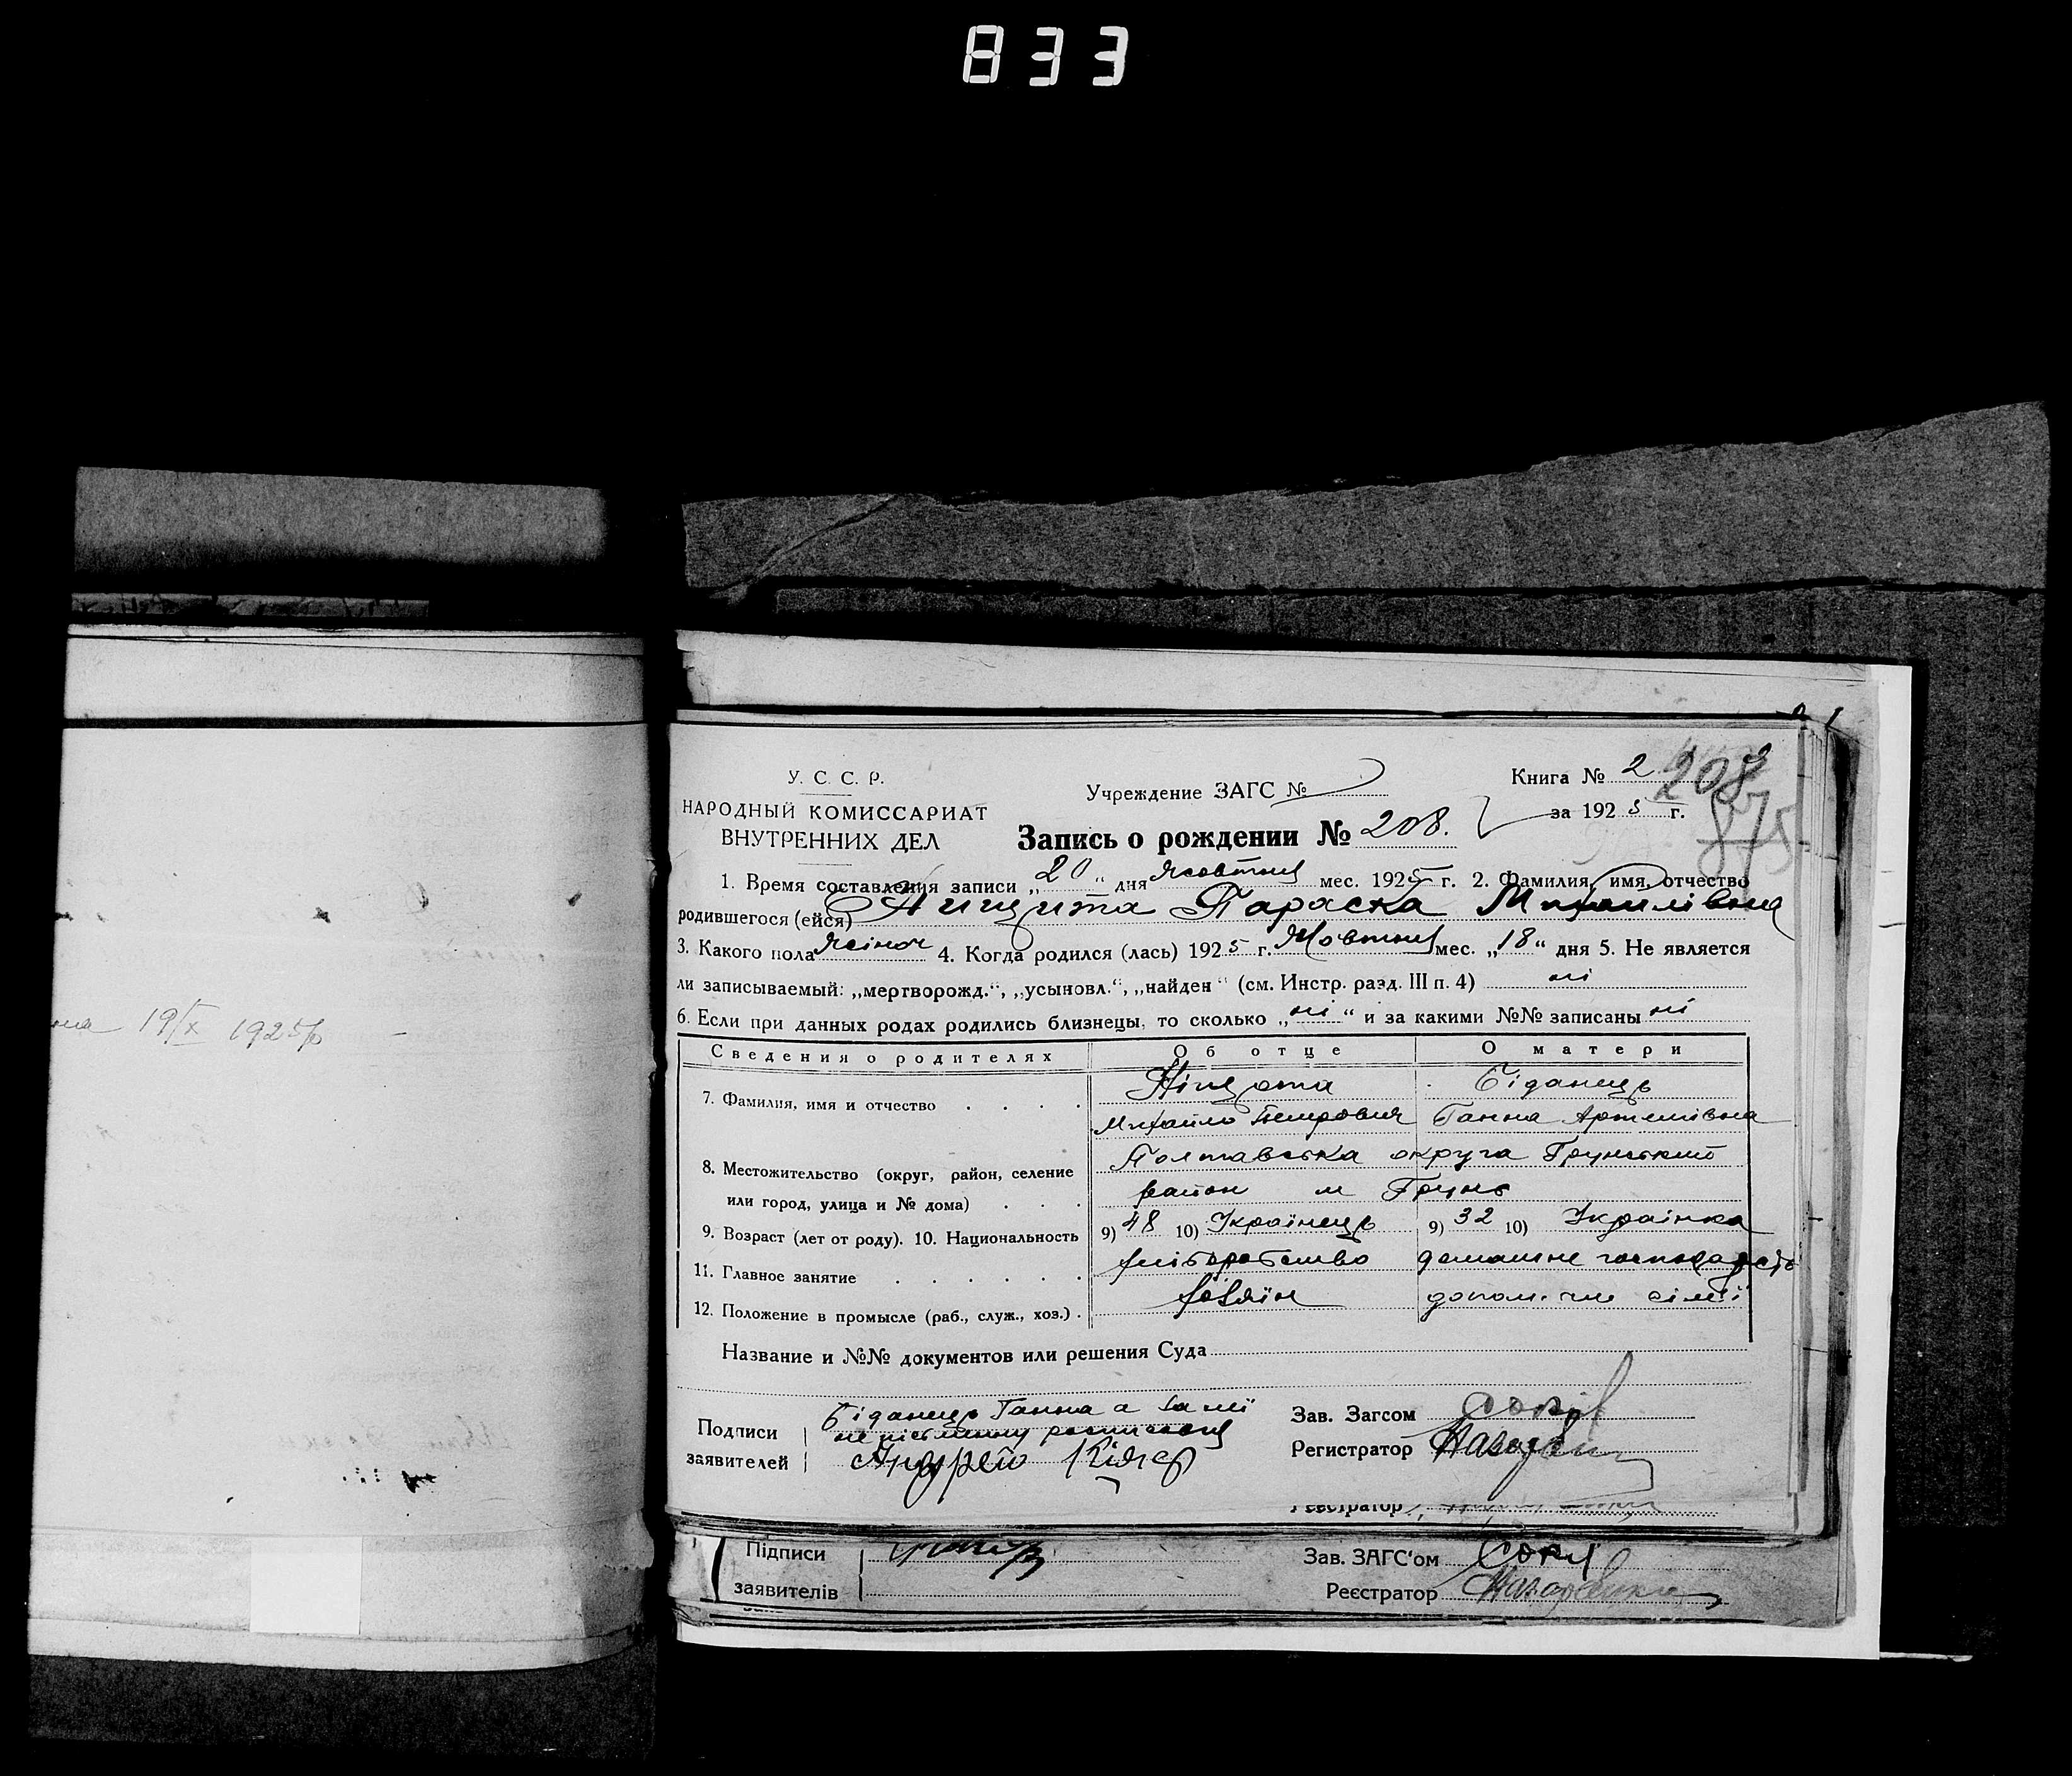 833
19/X 1925р
У. С. С. Р.
НАРОДНЫЙ КОМИССАРИАТ
ВНУТРЕННИХ ДЕЛ
Учреждение ЗАГС №
Книга № 2
208
за 1925 г.
875
Запись о рождении № 208.
1. Время составления записи „20“ дня жовтня мес. 1925 г. 2. Фамилия, имя, отчество
родившегося (ейся) Параска Михайлівна
3. Какого пола жіноч 4. Когда родился (лась) 1925 г. Жовтня мес. „18“ дня 5. Не является
ли записываемый: „мертворожд.“, „усыновл.“, „найден“ (см. Инстр. разд. III п. 4) ні
6. Если при данных родах родились близнецы, то сколько „ні“ и за какими №№ записаны ні
Сведения о родителях Об отце О матери
7. Фамилия, имя и отчество . . . .
Біданець
Михайло Петрович Ганна Артемівна
8. Местожительство (округ, район, селение
или город, улица и № дома) . . .
Полтавська округа Грунський
район м Грунь
9. Возраст (лет от роду). 10. Национальность 9) 48 10) Українець 9) 32 10) Українка
11. Главное занятие . . . . . . хліборобство домашнє господарств
12. Положение в промысле (раб., служ., хоз.) . хазяїн допом. чл сім'ї
Название и №№ документов или решения Суда
Подписи
заявителей
Біданець Ганна а за неї
неписьменну росписався
Андрей
Зав. Загсом
Регистратор
Регистратор
Підписи
заявителів
Зав. ЗАГС'ом
Реєстратор